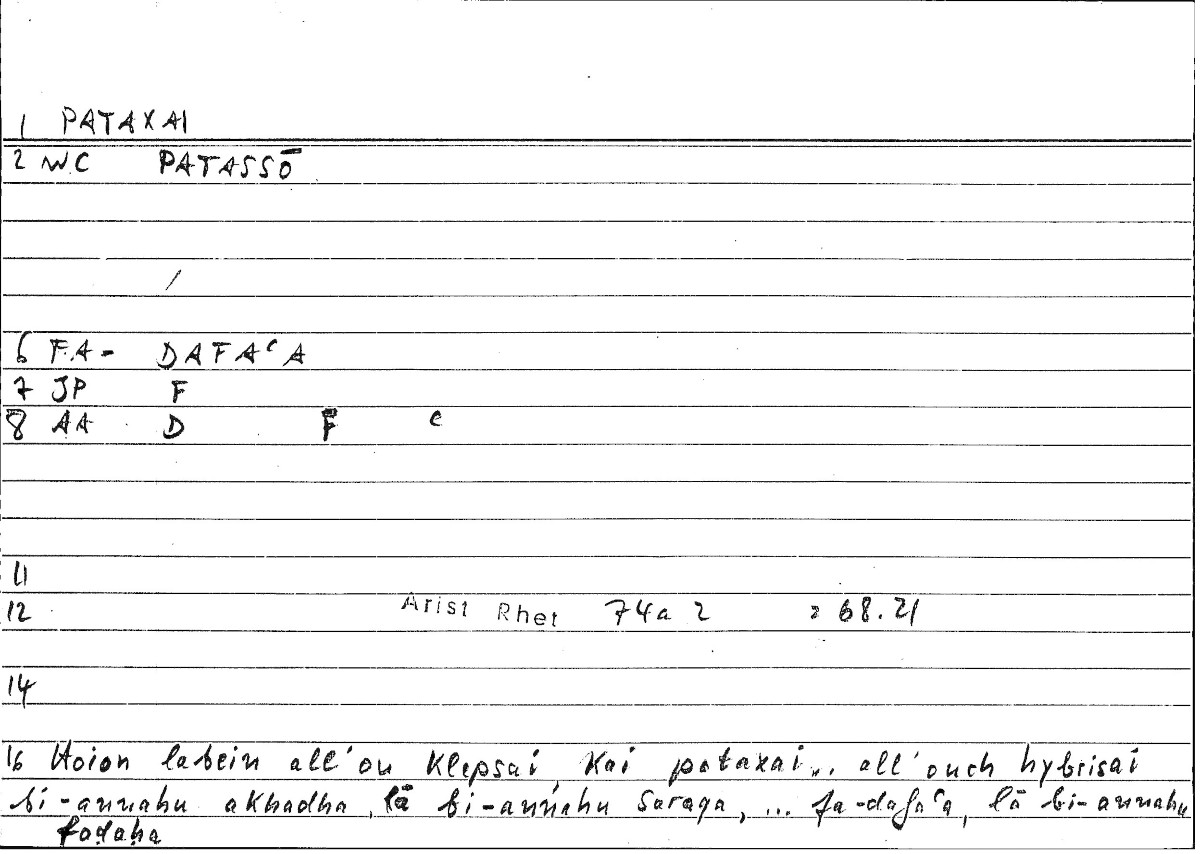 1 PATAXAI
2 WC PATASSŌ
/
6 FA- DAFAʿA
7 JP F
8 AA D F ʿ
11
12 Arist Rhet 74a 2 : 68.21
14
16 Hoion labein all'ou klepsai kai pataxai... all'ouch hybrisai
bi-annahu akhadha, lā bi-annahu saraqa, ... fa-dafaʿa, lā bi-annahu
faḍaḥa